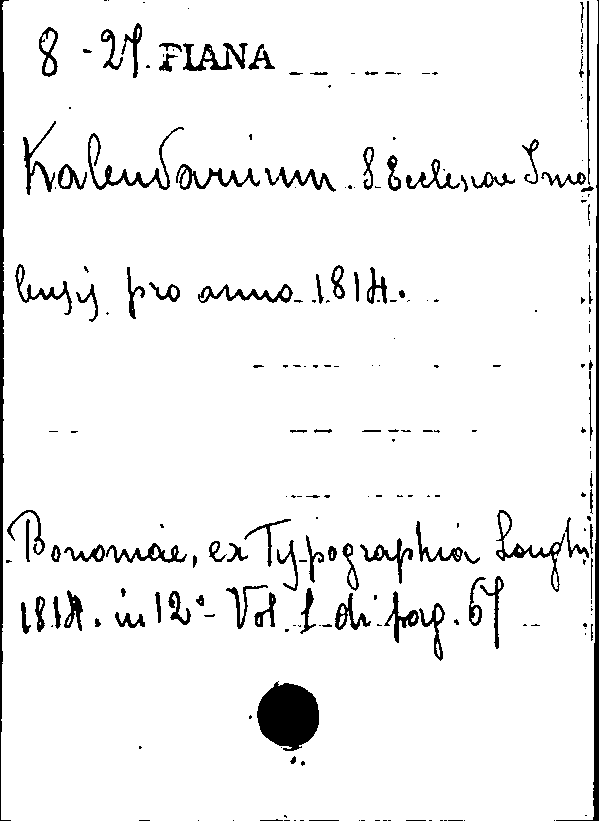 8-27. PIANA
Kalendarium S. Ecclesiae Imo
lensis pro anno 1814.
Bononiae, ex Typographia Longhi
1814. in 12° - Vol. 1 di pag. 67